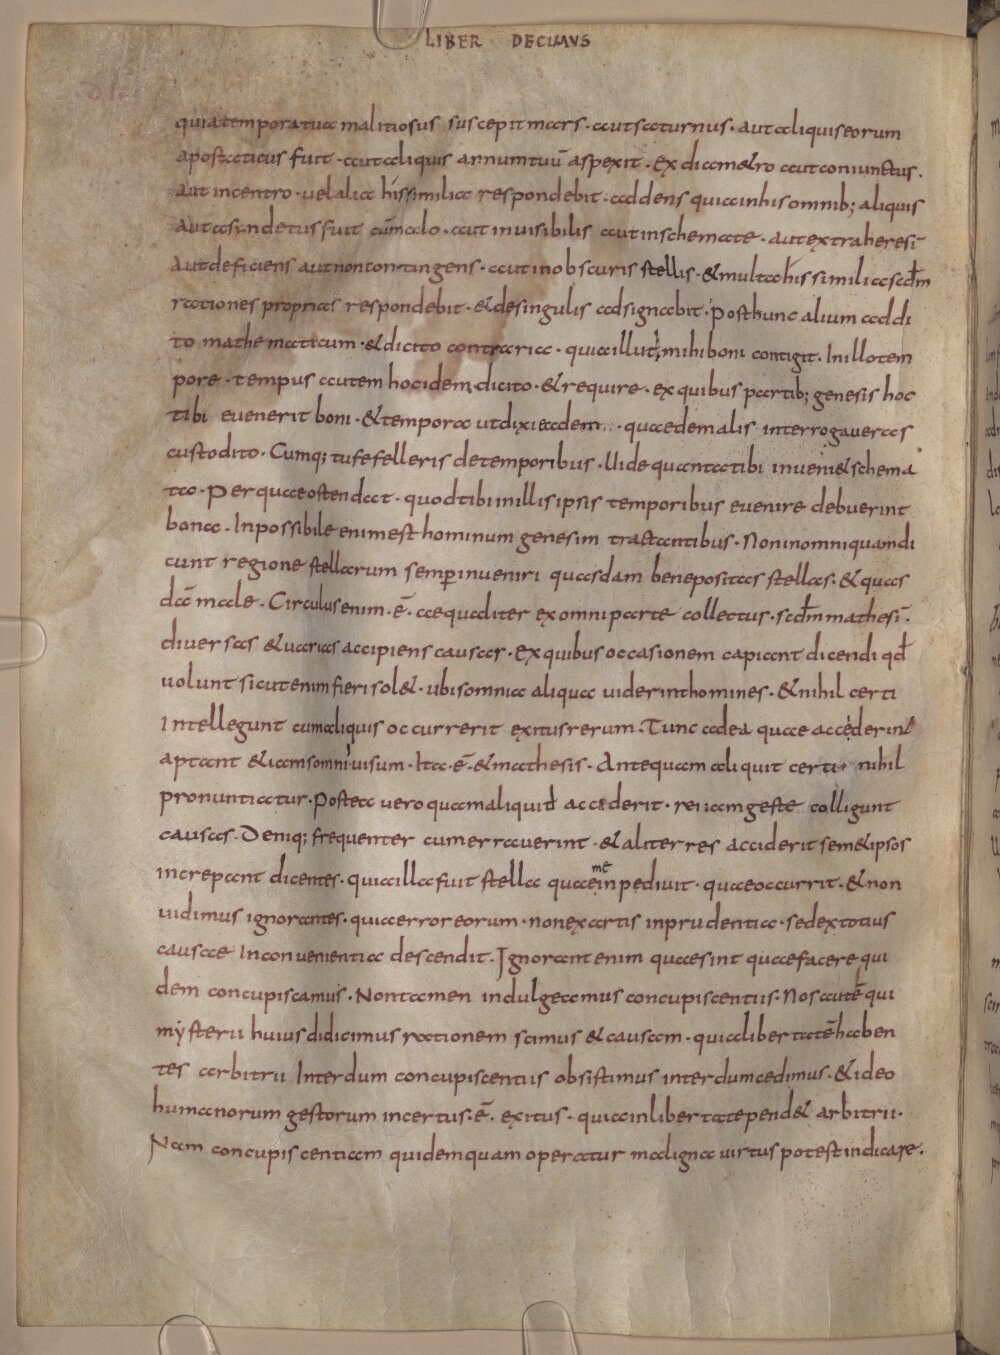 LIBER DECIMVS
quia tempora tua malitiosus suscepit mars · aut saturnus · aut aliquis eorum
apostaticus fuit · aut aliquis annum tuū aspexit · Ex diametro aut coniunctus ·
aut in centro · uel alia his similia respondebit · addens quia in his omnib; aliquis
Aut asyndetus fuit cū malo · aut inuisibilis aut in schemate · aut extra heresī
Aut deficiens aut non contingens · aut in obscuris stellis · & multa his similia scdm
rationes proprias respondebit · & de singulis adsignabit · Post hunc alium addi
to mathematicum · & dicito contraria · quia illut mihi boni contigit · In illo tem
pore · tempus autem hoc idem dicito · & require · ex quibus partib; genesis hoc
tibi euenerit boni · & tempora ut dixi eadem · quae de malis interrogaueras
custodito · Cumq; tu fefelleris de temporibus · Uide quanta tibi inueni& schema
ta · Per quae ostendat · quod tibi in illis ipsis temporibus euenire debuerint
bona · Inpossibile enim est hominum genesim tractantibus · Non in omni quam di
cunt regione stellarum semp inueniri quasdam bene positas stellas · & quas
dā male · Circulus enim · ē · aequaliter ex omni parte collectus · scdm mathesī ·
diuersas & uarias accipiens causas · Ex quibus occasionem capiant dicendi qd
uolunt sicut enim fieri sol& · ubi somnia aliqua uiderint homines · & nihil certi
Intellegunt cum aliquis occurrerit exitus rerum · Tunc ad ea quae acciderint
aptant & iam somni uisum · Ita · ē · & mathesis · Antequam aliquit certi nihil
pronuntiatur · Postea uero quam aliquid acciderit · rei iam geste colligunt
causas · Deniq; frequenter cum errauerint · & aliter res acciderit sem&ipsos
increpant dicentes · quia illa fuit stella quae mē inpediuit · quae occurrit · & non
uidimus ignorantes · quia error eorum · non ex artis inprudentia · sed ex totius
causae Inconuenientia descendit · Ignorant enim quae sint quae facere qui
dem concupiscamus · Non tamen indulgeamus concupiscentiis · Nos autē qui
mysterii huius didicimus rationem scimus & causam · quia libertatē haben
tes arbitrii Interdum concupiscentiis obsistimus interdum cedimus · & ideo
humanorum gestorum incertus · ē · exitus · quia in libertate pend& arbitrii ·
Nam concupiscentiam quidem quam operatur maligna uirtus potest indicare ·